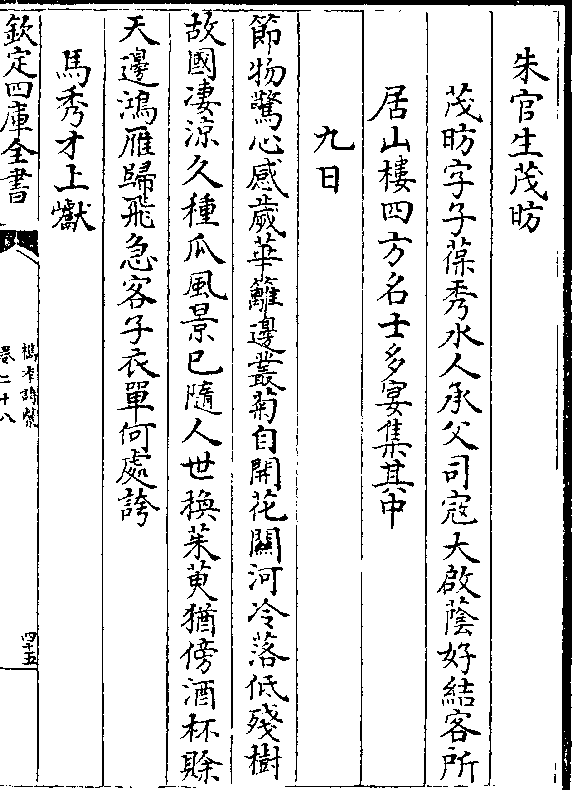 朱官生茂昉
茂昉字子葆秀水人承父司寇大啟蔭好結客所
居山樓四方名士多宴集其中
九日
節物驚心感歲華籬邊叢菊自開花關河冷落低殘樹
故國凄涼久種瓜風景已隨人世換茱萸猶傍酒杯賖
天邊鴻雁歸飛急客子衣單何處誇
馬秀才上巘
欽定四庫全書
檇李詩繫
卷二十八
四十五